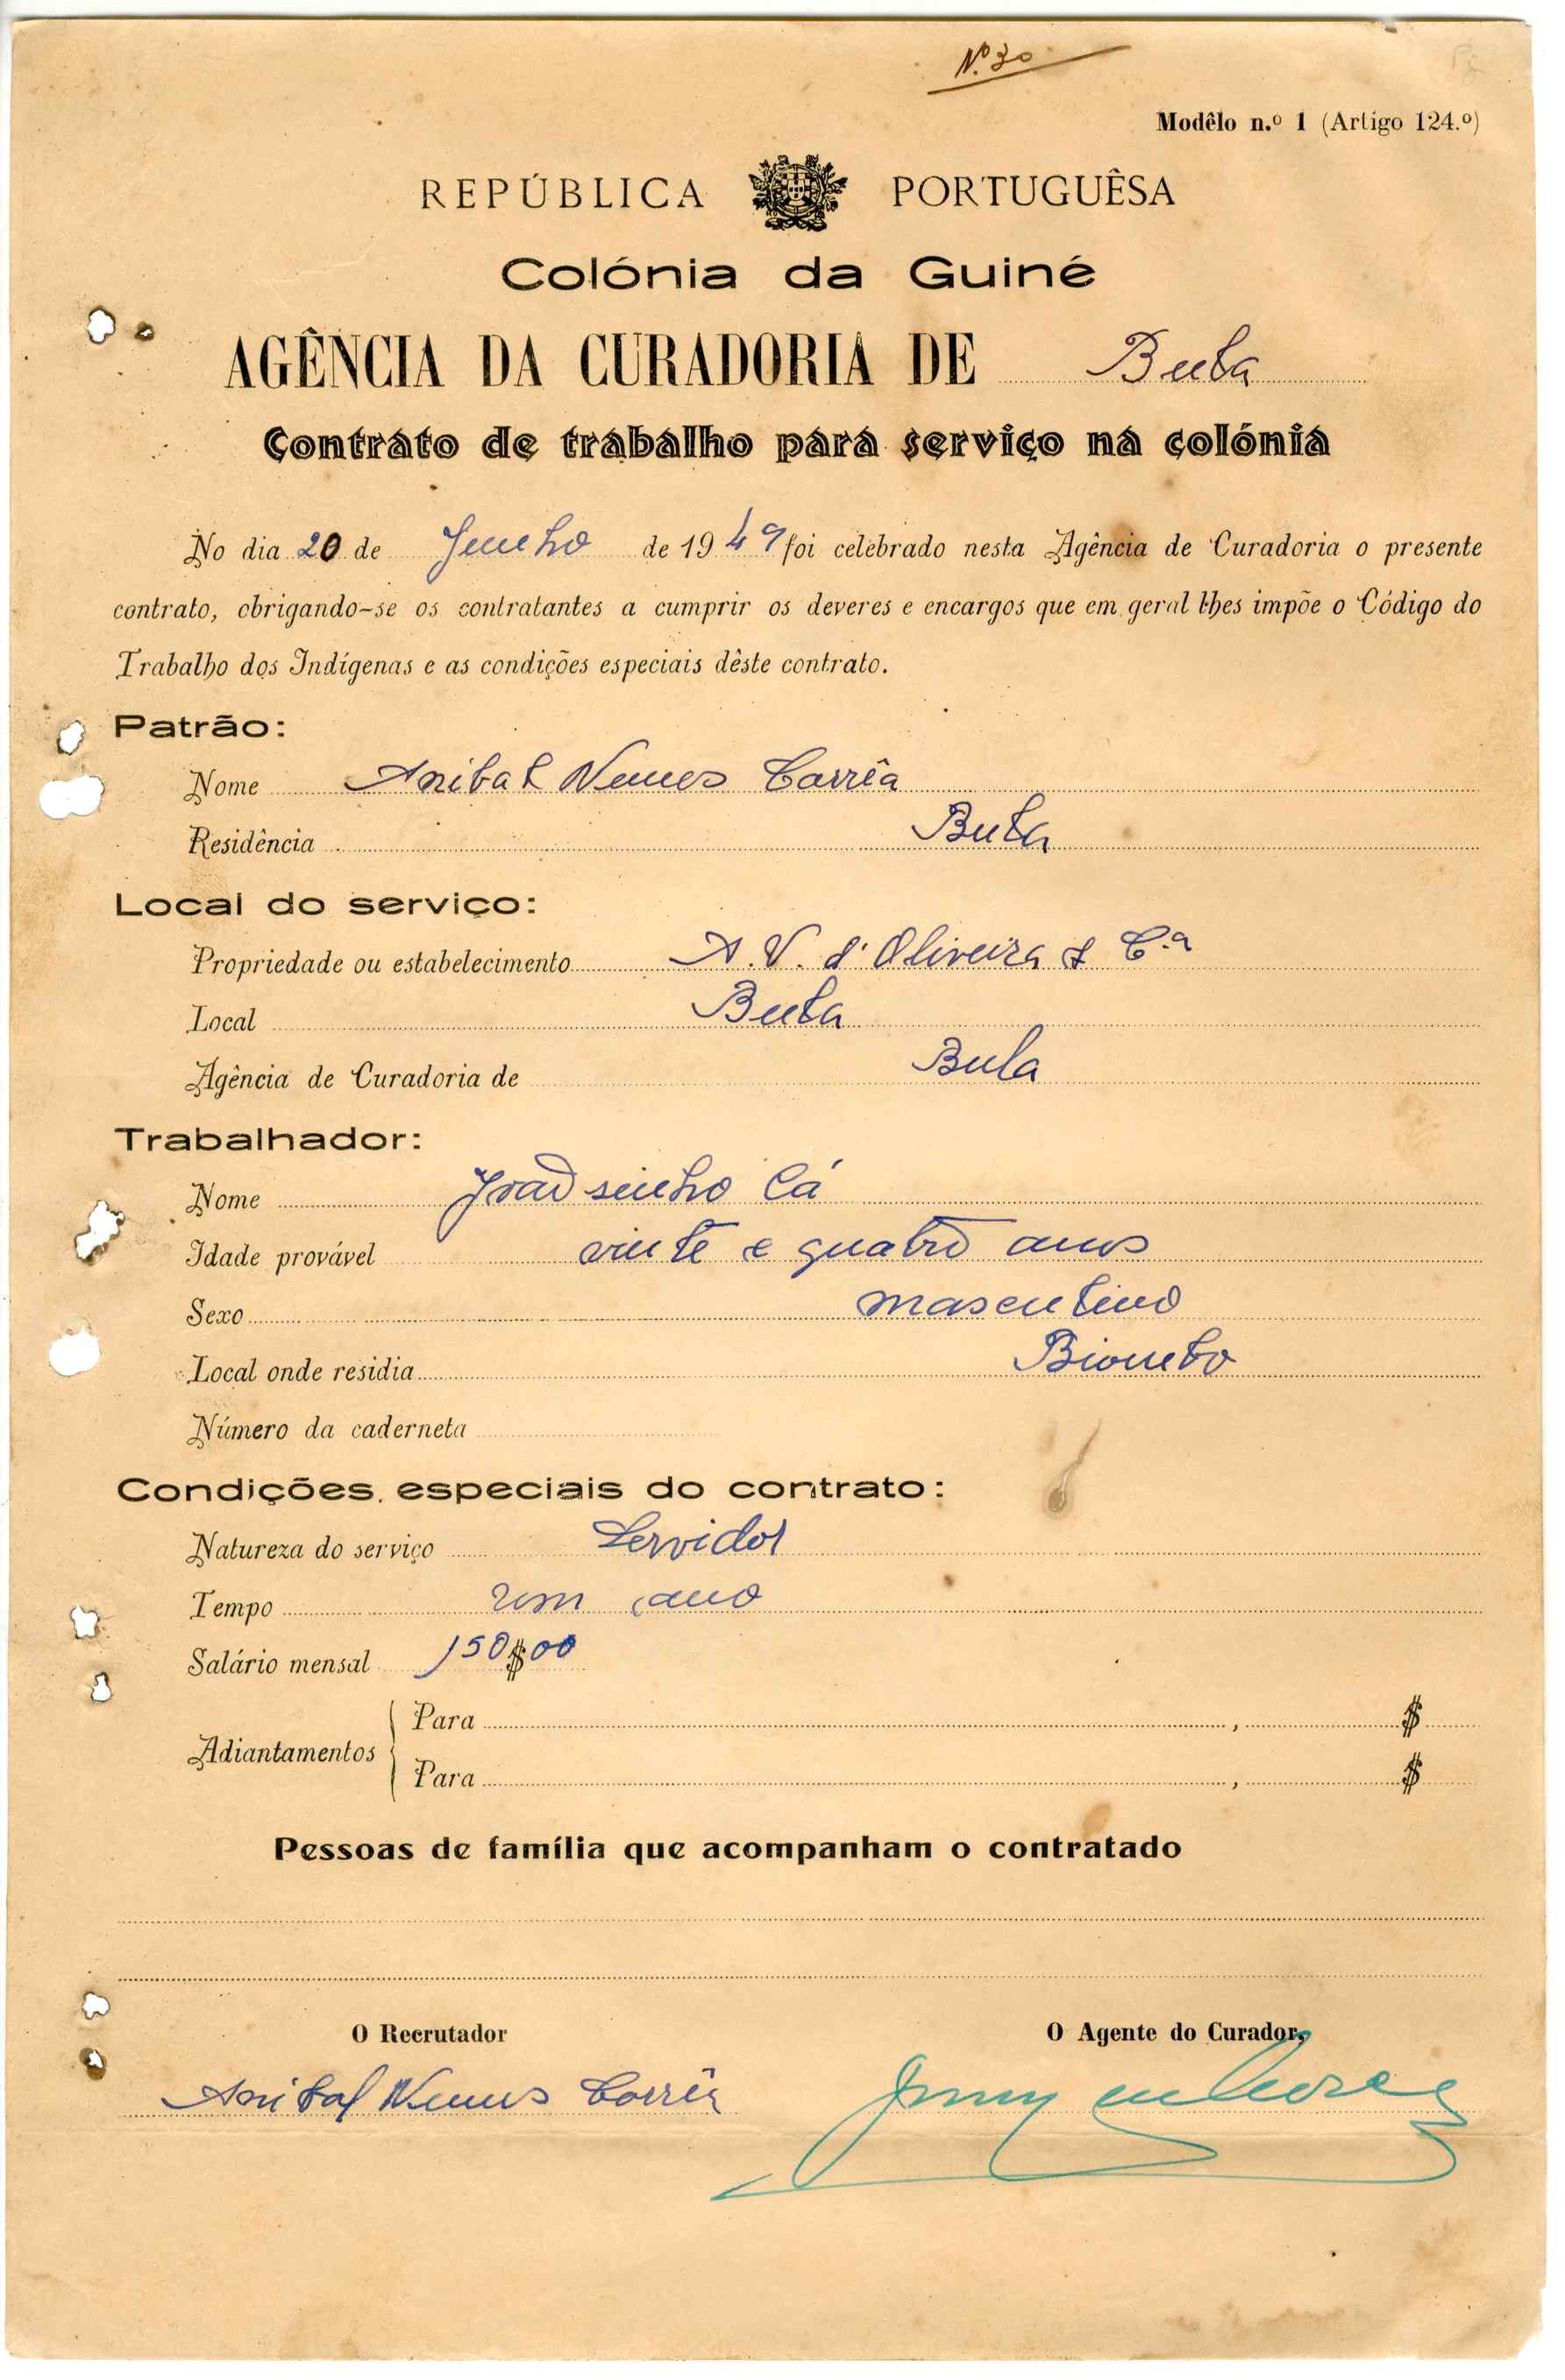 N.º 30
Modêlo n.º 1 (Artigo 124.º)
REPÚBLICA PORTUGUÊSA
Colónia da Guiné
AGÊNCIA DA CURADORIA DE Bula
Contrato de trabalho para serviço na colónia
No dia 20 de Junho de 1949 foi celebrado nesta Agência de Curadoria o presente
contrato, obrigando-se os contratantes a cumprir os deveres e encargos que em geral lhes impõe o Código do
Trabalho dos Indígenas e as condições especiais dêste contrato.
Patrão:
Nome Anibal Nunes Corrêa
Residência Bula
Local do serviço:
Propriedade ou estabelecimento A. V. d'Oliveira & C.ª
Local Bula
Agência de Curadoria de Bula
Trabalhador:
Nome Joãosinho Cá
Idade provável vinte e quatro anos
Sexo masculino
Local onde residia Biombo
Número da caderneta
Condições especiais do contrato:
Natureza do serviço Servidor
Tempo um ano
Salário mensal 150$00
Adiantamentos
Para , $
Para , $
Pessoas de família que acompanham o contratado
O Recrutador O Agente do Curador,
Anibal Nunes Corrêa